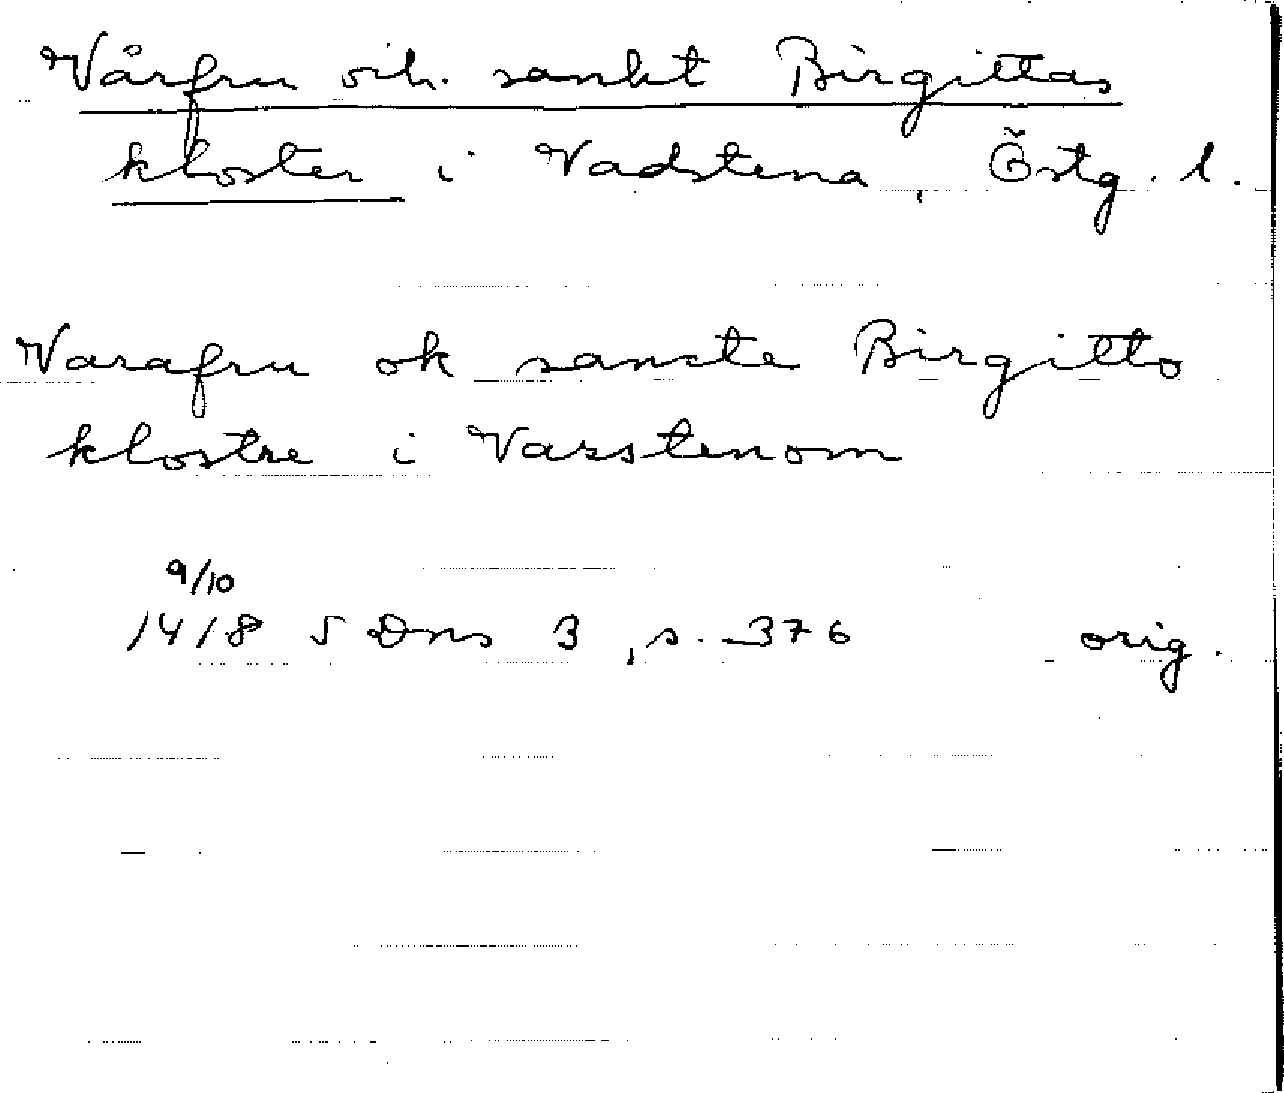 Vårfru och sankt Birgittas
kloster i Vadstena, Östg. l.
Varafru ok sancte Birgitto
klostre i Vasstenom
9/10
1418 SDns 3, s. 376 orig.